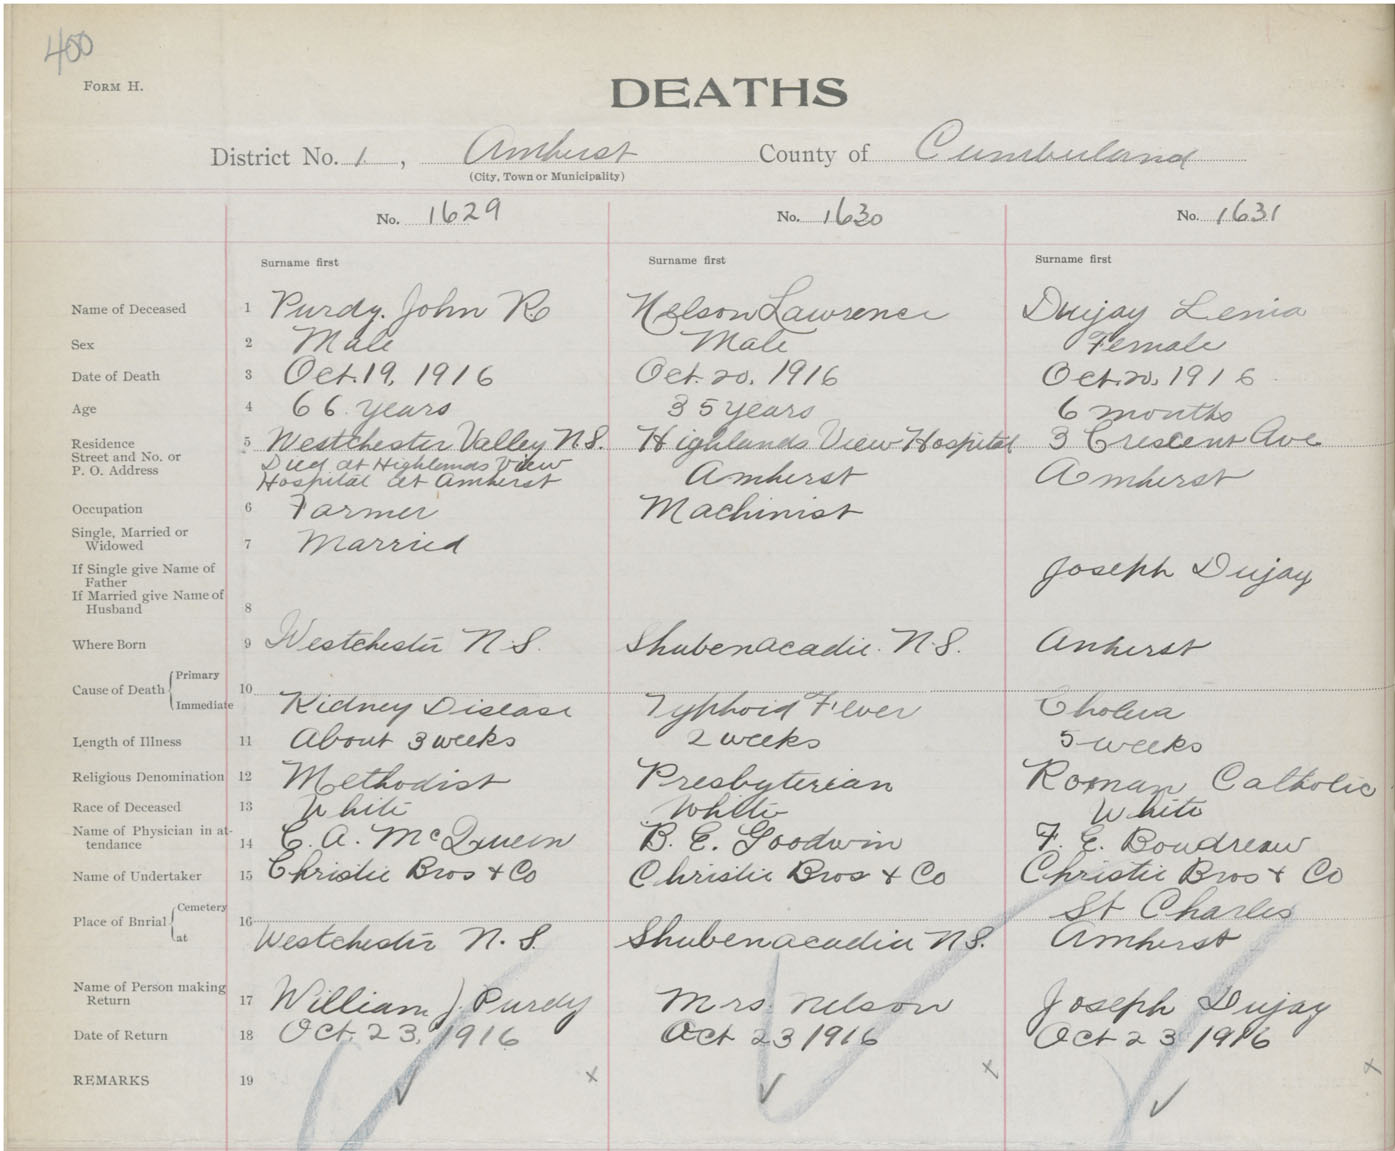 400
FORM H.
DEATHS
District No. 1, Amherst County of Cumberland
(City, Town or Municipality)
No. 1629 No. 1630 No. 1631
Surname first Surname first Surname first
Name of Deceased 1 Purdy. John R. Nelson Lawrence Dujay Lenia
Sex 2 Male Male Female
Date of Death 3 Oct. 19, 1916 Oct. 20, 1916 Oct. 20, 1916
Age 4 66 years 35 years 6 months
Residence 5 Westchester Valley N.S. Highlands View Hospital 3 Crescent Ave
Street and No. or Died at Highlands View
P. O. Address Hospital at Amherst Amherst Amherst
Occupation 6 Farmer Machinist
Single, Married or
Widowed 7 Married
If Single give Name of
Father Joseph Dujay
If Married give Name of
Husband 8
Where Born 9 Westchester N.S. Shubenacadie. N.S. Amherst
Cause of Death Primary 10
Immediate Kidney Disease Typhoid Fever Cholera
Length of Illness 11 About 3 weeks 2 weeks 5 weeks
Religious Denomination 12 Methodist Presbyterian Roman Catholic
Race of Deceased 13 White White White
Name of Physician in at-
tendance 14 C. A. McQueen B. E. Goodwin F. E. Boudreau
Name of Undertaker 15 Christie Bros + Co Christie Bros + Co Christie Bros + Co
Place of Burial Cemetery 16 St Charles
at Westchester N.S. Shubenacadia N.S. Amherst
Name of Person making
Return 17 William J. Purdy Mrs. Nelson Joseph Dujay
Date of Return 18 Oct. 23, 1916 Oct 23 1916 Oct 23 1916
REMARKS 19